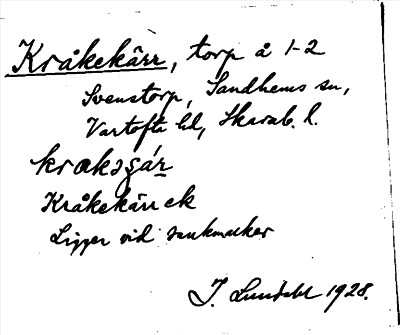 Kråkekärr, torp å 1-2
Svenstorp, Sandhems sn,
Vartofta hd, Skarab. l.
Kråkekärr ek
Ligger vid sankmarker
J. Lundahl 1928.